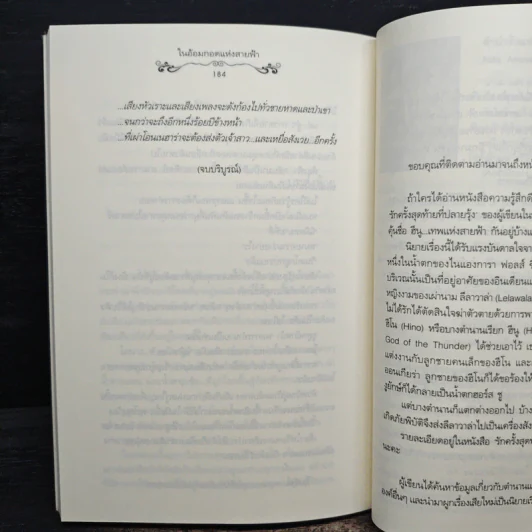 ในอ้อมกอดแห่งสายฟ้า
184
...เสียงหัวเราะและเสียงเพลงจะดังก้องไปทั่วชายหาดและป่าเขา
...จนกว่าจะถึงอีกหนึ่งร้อยปีข้างหน้า
ที่เผ่าโอนเนฮาร่าจะต้องส่งตัวเจ้าสาว...และเหยื่อสังเวย...อีกครั้ง
(จบบริบูรณ์)
ขอบคุณที่ติดตามอ่านมาจนถึงหน้
ถ้าใครได้อ่านหนังสือความรู้สึกดี
รักครั้งสุดท้ายที่ปลายรุ้ง' ของผู้เขียนใน
คุ้นชื่อ ฮีนู...เทพแห่งสายฟ้า กันอยู่บ้างแ
นิยายเรื่องนี้ได้รับแรงบันดาลใจจา
หนึ่งในน้ำตกของไนแองการา ฟอลส์ ซึ
บริเวณนั้นเป็นที่อยู่อาศัยของอินเดียนแ
หญิงงามของเผ่านาม ลีลาวาล่า (Lelawala
ไม่ได้รักได้ตัดสินใจฆ่าตัวตายด้วยการพา
ฮีโน (Hino) หรือบางตำนานเรียก ฮีนู (H
God of the Thunder) ได้ช่วยเอาไว้ เธ
แต่งงานกับลูกชายคนเล็กของฮีโน และ
ออนเกียร่า ลูกชายของฮีโนก็ได้ขอร้องให้
งูยักษ์ก็ได้กลายเป็นน้ำตกฮอร์ส ชู
แต่บางตำนานก็แตกต่างออกไป บ้าง
เกิดภัยพิบัติจึงส่งลีลาวาล่าไปเป็นเครื่องสัง
รายละเอียดอยู่ในหนังสือ 'รักครั้งสุดท
นะคะ
ผู้เขียนได้ค้นหาข้อมูลเกี่ยวกับตำนานแ
องค์อื่นๆ และนำมาผูกเรื่องเสียใหม่เป็นนิยายเรื